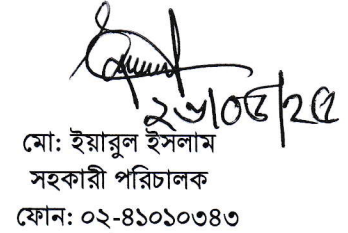 ২৬/০৫/২৫
মো: ইয়ারুল ইসলাম
সহকারী পরিচালক
ফোন: ০২-৪১০১০৩৪৩